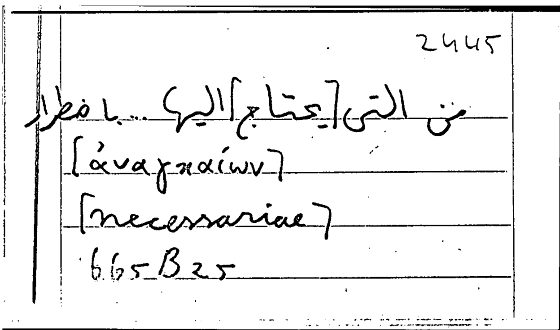 2445
من التى [يحتاج] اليها .. باضطرار
[ἀναγκαίων]
[necessariae]
665B25